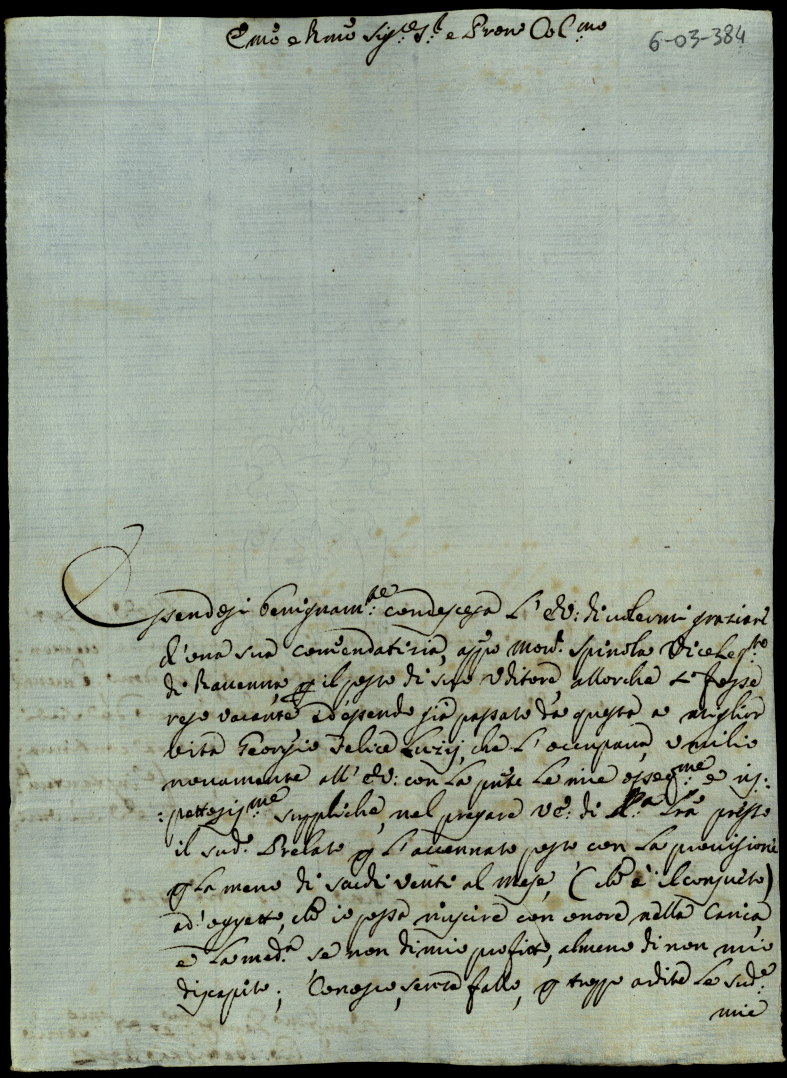 Emõ e Rmõ Sig.re S.r e Pron Col.mo
6-03-384
Essendosi benignam.te condescesa L'Ev: di volermi graziare
d'una sua comendatizia, appo Mons.r Spinola Viceleg.to
di Ravenna, p il posto di suo Uditore, allorche si fosse
reso vacante, ed essendo già passato da questa a miglior
vita Georgio Felice Luzij, che L'occupava, umilio
novamente all'Ev: con La pñte Le mie osseq.me e ris:
:pettosis.me suppliche, nel pregare VE: di Lrã presso
il sud.o Prelato p L'accennato posto con La provisione
p La meno di scudi venti al mese, (ch'è il consueto)
ad'oggetto, ch'io possa riuscire con onore nella Carica,
e La med.a se non di mio profitto, almeno di non mio
discapito; Conosco, senza fallo, p troppo ardite Le sud.e
mie